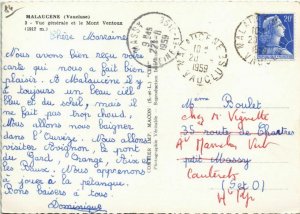 84
MALAUCENE (Vaucluse)
2 - Vue générale et le Mont Ventoux
(1912 m.)
Chère Marraine
Nous avons bien reçu votre
carte qui nous a fait bien
plaisir. A Malaucène il y
a toujours un beau ciel
bleu et du soleil, mais il
ne fait pas trop chaud.
Nous allons nous baigner
dans l'Ouvèze. Nous allons
visiter Avignon, le pont
du Gard, Orange, Aix
les Baux. Nous apprenons
à jouer à la pétanque.
Bons baisers à tous
Dominique
MASSY
1959
MALAUCENE
20
1959
VAUCLUSE
20F
Mme Boulet
chez M. Vignette
35 route de Chartres
petit Massy
Cauterets
(S et O)
H Pyr